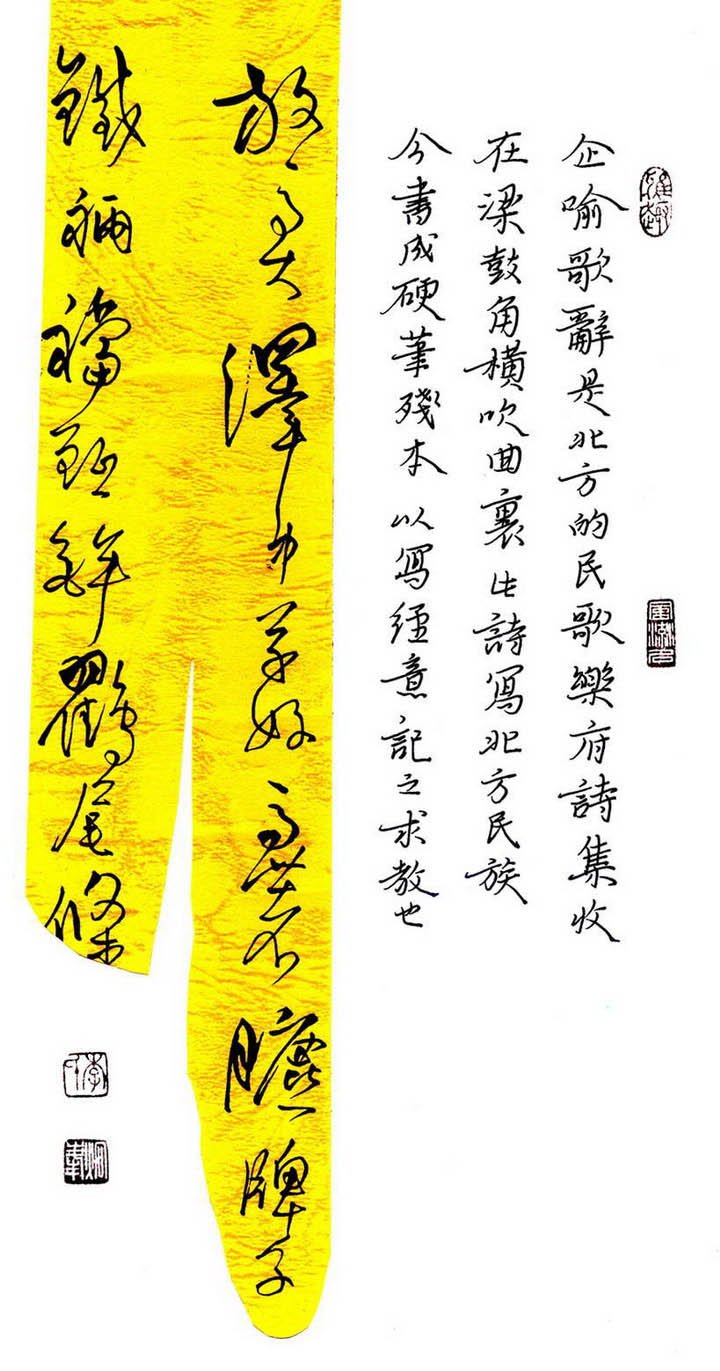 企喻歌辭是北方的民歌樂府詩集收
在梁鼓角橫吹曲裏此詩寫北方民族
今書成硬筆殘本以寫經意記之求教也
放馬大澤中草好馬著臕牌子
鐵裲襠鉦鉾鸐尾條